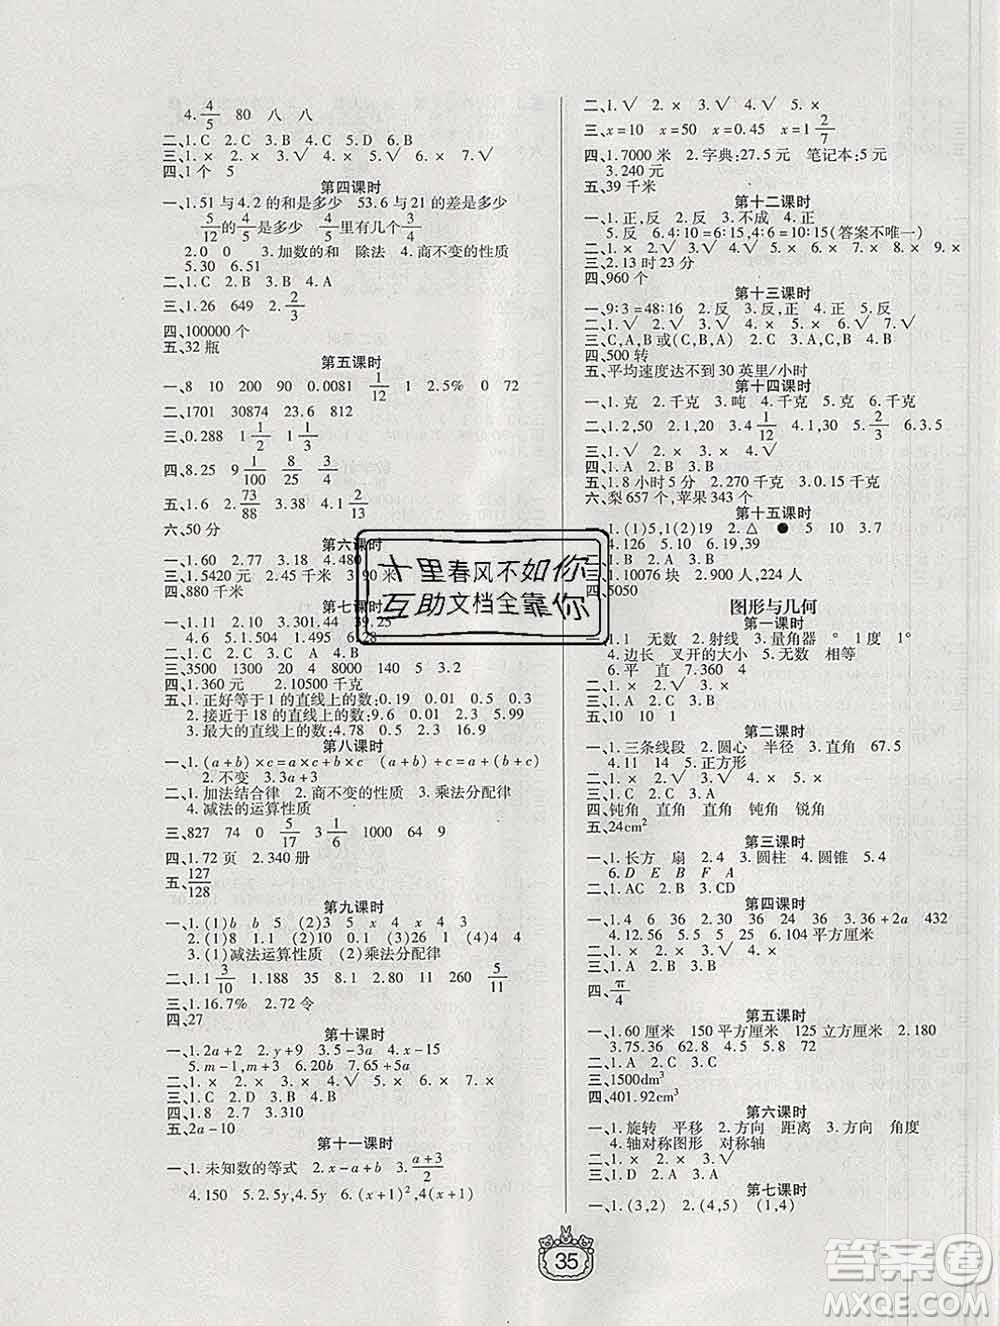 4. 4/5 80 八 八
二、1.C 2.C 3.B 4.C 5.D 6.C
三、1.× 2.× 3.√ 4.√ 5.× 6.× 7.√
四、1 个 5
第四课时
一、1.51 与 4.2 的和是多少 53.6 与 21 的差是多少
5/12 的 3/4 是多少 5/4 里有几个 3/4
2.0 0 3.加数的和 除法 4.商不变的性质
5.30 6.51
二、1.C 2.B 3.B 4.A
三、1.26 649 2. 2/3
四、100000 个
五、32 瓶
第五课时
一、8 10 200 90 0.0081 1/12 2.5% 0 72
二、1701 30874 23.6 812
三、0.288 1 1/2 1 1/3
四、8.25 9 1/100 8/25 9/4
五、1.6 2. 73/88 3.38 4.1 2/13
六、50 分
第六课时
一、1.60 2.77 3.18 4.480
二、1.5420 元 2.45 千米 3.90 米
四、880 千米
第七课时
一、1.11 2.10
4.6 5.1.504 1.495 6.28
二、1.C 2.B C 3.C A 4.B
三、3500 1300 20 4 8000 140 5 3
四、1.360 元 2.10500 千克
五、1.正好等于 1 的直线上的数:0.19 0.01 0.4
2.接近于 18 的直线上的数:9.6 0.01 2.3 5.95
3.最大的直线上的数:4.78 0.5 2.3 16.9
第八课时
一、1.(a+b)×c=a×c+b×c (a+b)+c=a+(b+c)
2.不变 3.3a+3
二、1.加法结合律 2.商不变的性质 3.乘法分配律
4.减法的运算性质
三、827 74 0 5/17 3 1/6 1000 64 9
四、1.72 页 2.340 册
五、127/128
第九课时
一、1.(1)b b 5 (2)3 5 x x 4 3
2.(1)8 1.1 (2)0 9 (3)4 2 (4)4 4
3.(1)减法运算性质 (2)乘法分配律
二、1.1 3/10 1.188 35 8.8 11 260 5/11
三、1.16.7% 2.72 令
四、27
第十课时
一、1.2a+2 2.3x 3.5-3a 4.x-15
5.m-1,m+3 6.107.6+5a
二、1.× 2.× 3.× 4.× 5.√ 6.× 7.×
三、1.C 2.D 3.B 4.B
四、1.8 2.7 3.310
五、2a-10
第十一课时
一、1.未知数的等式 2.x-a+b 3. (a+3)/2
4.150 5.2.5y,1.5y 6.(x+1)²,4(x+1)
二、1.√ 2.× 3.√ 4.√ 5.×
三、x=10 x=50 x=0.45 x=1 2/7
四、1.7000 米 2.字典:27.5 元 笔记本:5 元
3.240 元
五、39 千米
第十二课时
一、1.正,反 2.反 3.不成 4.正
5.反 6.4:10=6:15,4:6=10:15(答案不唯一)
二、1.× 2.√ 3.× 4.√ 5.× 6.× 7.× 8.× 9.×
三、2.13 时 23 分
四、960 个
第十三课时
一、9:3=48:16 2.反 3.反,正 4.正 5.反
二、1.√ 2.√ 3.√ 4.√ 5.× 6.√ 7.√
三、C,A,B 或(C,B,A) 2.A,B,C
四、500 转
五、平均速度达不到 30 英里/小时
第十四课时
一、1.克 2.克 3.吨 4.千克 5.克 6.千克
二、1.2,50 2.1,20 3.4 1/12 4.1,30 5. 2/3 6.3.5
三、1.× 2.× 3.√ 4.√
四、1.A 2.C 3.B 4.C
五、1.8 小时 5 分 2.270 千克 3.12.5 千克
六、梨 657 个,苹果 343 个
第十五课时
一、1.(1)5,1(2)19 2.△ ● 5 10 3.7
4.126 5.10 6.19,39
三、1.10076 块 2.900 人,224 人
四、5050
图形与几何
第一课时
一、1.1 无数 2.射线 3.量角器 ° 1 度 1°
4.边长 叉开的大小 5.无数 相等
6.平 直 7.360 4
二、1.× 2.× 3.× 4.√
三、1.A 2.C 3.B
五、10 10 1
第二课时
一、1.三条线段 2.圆心 半径 3.直角 67.5
4.11 14 5.正方形
二、1.× 2.× 3.× 4.√ 5.× 6.×
三、1.B 2.C 3.C 4.A
四、钝角 直角 直角 钝角 锐角
五、24cm²
第三课时
一、1.长方 扇 2.4 3.圆柱 4.圆锥 5.4
6.D E B F A
二、1.AC 2.B 3.D
第四课时
一、1.4 6 4 2.36 36 32 3.36+2a 432
4.12.56 5.28 4 6.104 平方厘米
二、1.× 2.× 3.√ 4.×
三、1.B 2.C 3.A 4.C
四、π/4
第五课时
一、1.60 厘米 150 平方厘米 125 立方厘米 2.180
3.75.36 4.12 5.B
二、1.A 2.C 3.C
三、1500dm³
四、401.92cm²
第六课时
一、1.旋转 平移 2.方向 距离 3.方向 角度
4.轴对称图形 对称轴
二、1.× 2.× 3.√ 4.×
三、1.D 2.A 3.C
第七课时
一、1.(3,2) 2.(4,5) (1,4)
十里春风不如你
互助文档全靠你
35
答案圈
MXQE.COM